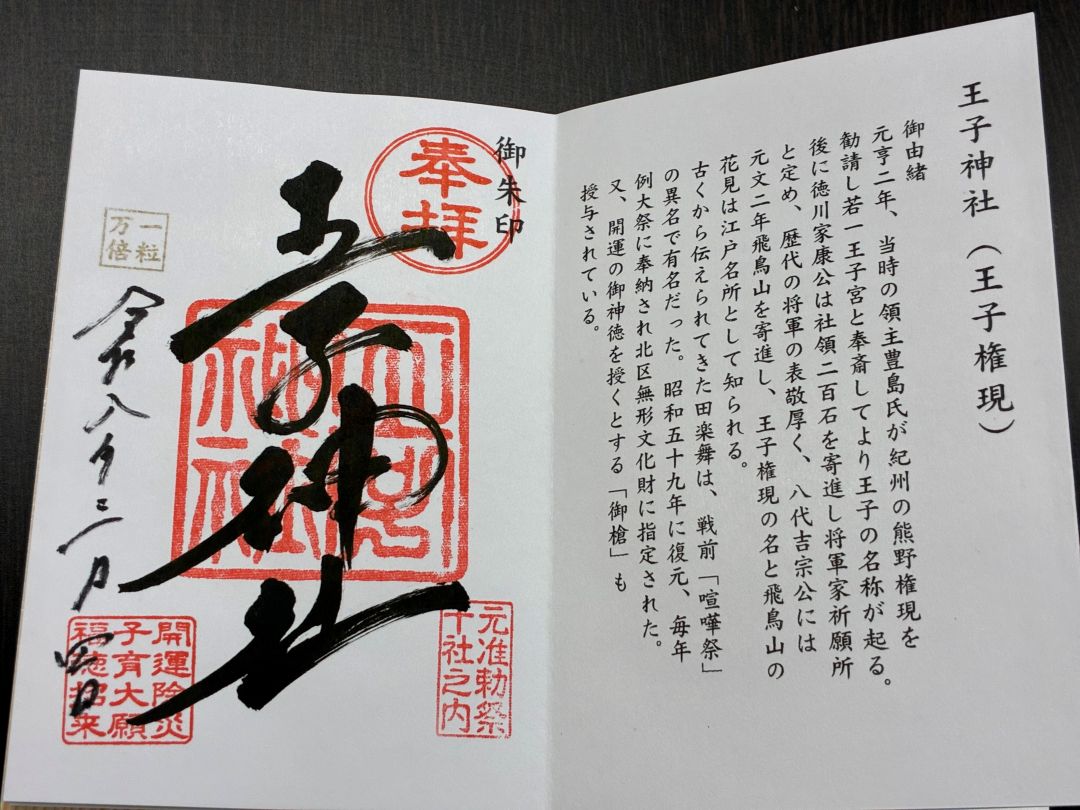 王子神社（王子権現）
御由緒
元亨二年、当時の領主豊島氏が紀州の熊野権現を
勧請し若一王子宮と奉斎してより王子の名称が起る。
後に徳川家康公は社領二百石を寄進し将軍家祈願所
と定め、歴代の将軍の表敬厚く、八代吉宗公には
元文二年飛鳥山を寄進し、王子権現の名と飛鳥山の
花見は江戸名所として知られる。
古くから伝えられてきた田楽舞は、戦前「喧嘩祭」
の異名で有名だった。昭和五十九年に復元、毎年
例大祭に奉納され北区無形文化財に指定された。
又、開運の御神徳を授くとする「御槍」も
授与されている。
御朱印
奉拝
元准勅祭
十社之内
王子神社
王子
神社
一粒
万倍
令和八年三月四日
開運除災
子育大願
福徳招来